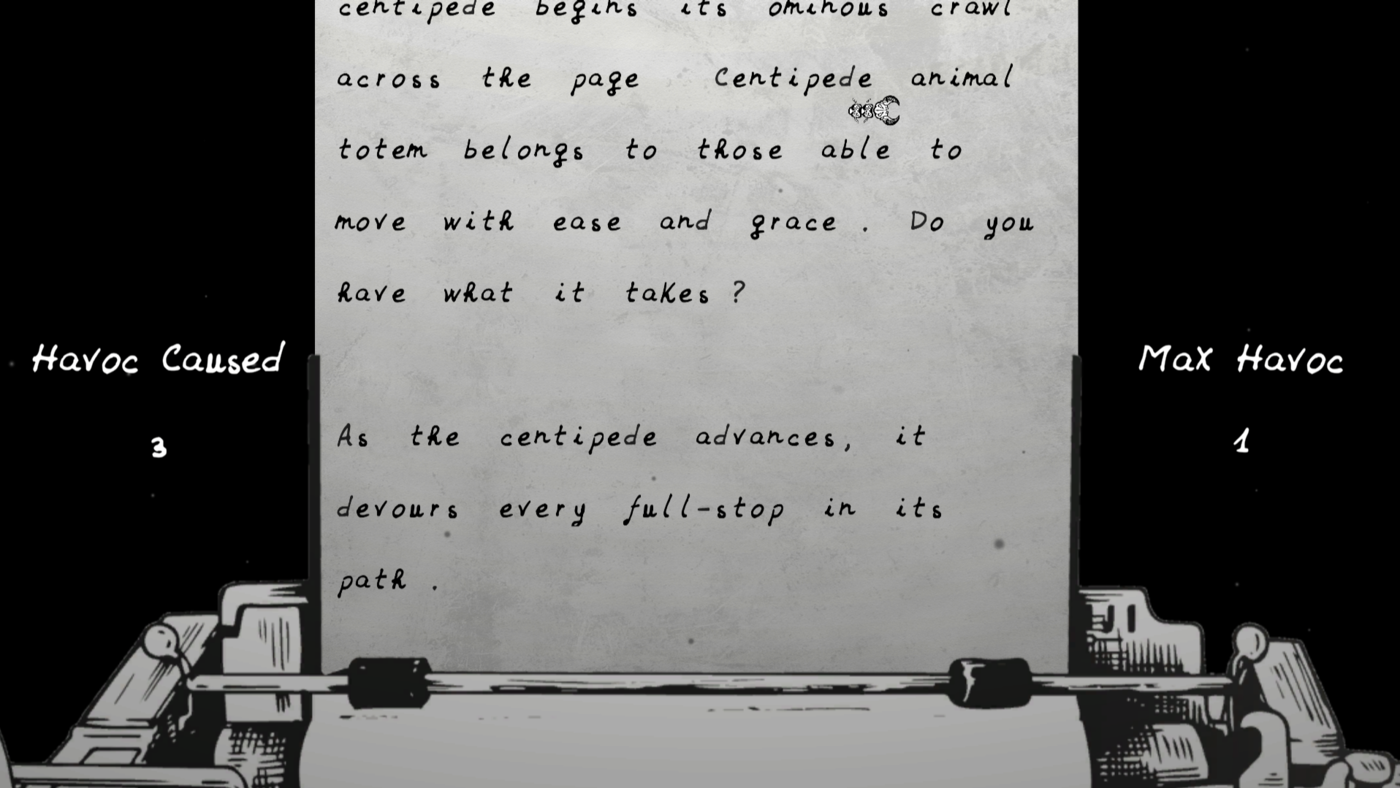 centipede begins its ominous crawl
across the page Centipede animal
totem belongs to those able to
move with ease and grace . Do you
have what it takes ?
Havoc Caused
3
Max Havoc
1
As the centipede advances, it
devours every full-stop in its
path .